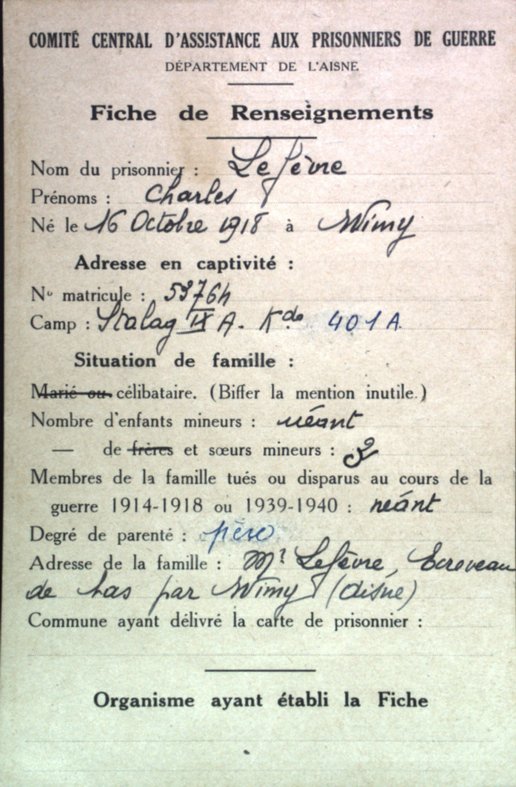 COMITÉ CENTRAL D'ASSISTANCE AUX PRISONNIERS DE GUERRE
DÉPARTEMENT DE L'AISNE
Fiche de Renseignements
Nom du prisonnier : Lefèvre
Prénoms : Charles
Né le 16 Octobre 1918 à Wimy
Adresse en captivité :
No matricule :
Camp : Stalag IX A. Kdo 401 A
Situation de famille :
Marié ou célibataire. (Biffer la mention inutile.)
Nombre d'enfants mineurs : néant
— de frères et sœurs mineurs :
Membres de la famille tués ou disparus au cours de la
guerre 1914-1918 ou 1939-1940 : néant
Degré de parenté : père
Adresse de la famille : Mr Lefèvre,
de bas par Wimy (Aisne)
Commune ayant délivré la carte de prisonnier :
Organisme ayant établi la Fiche